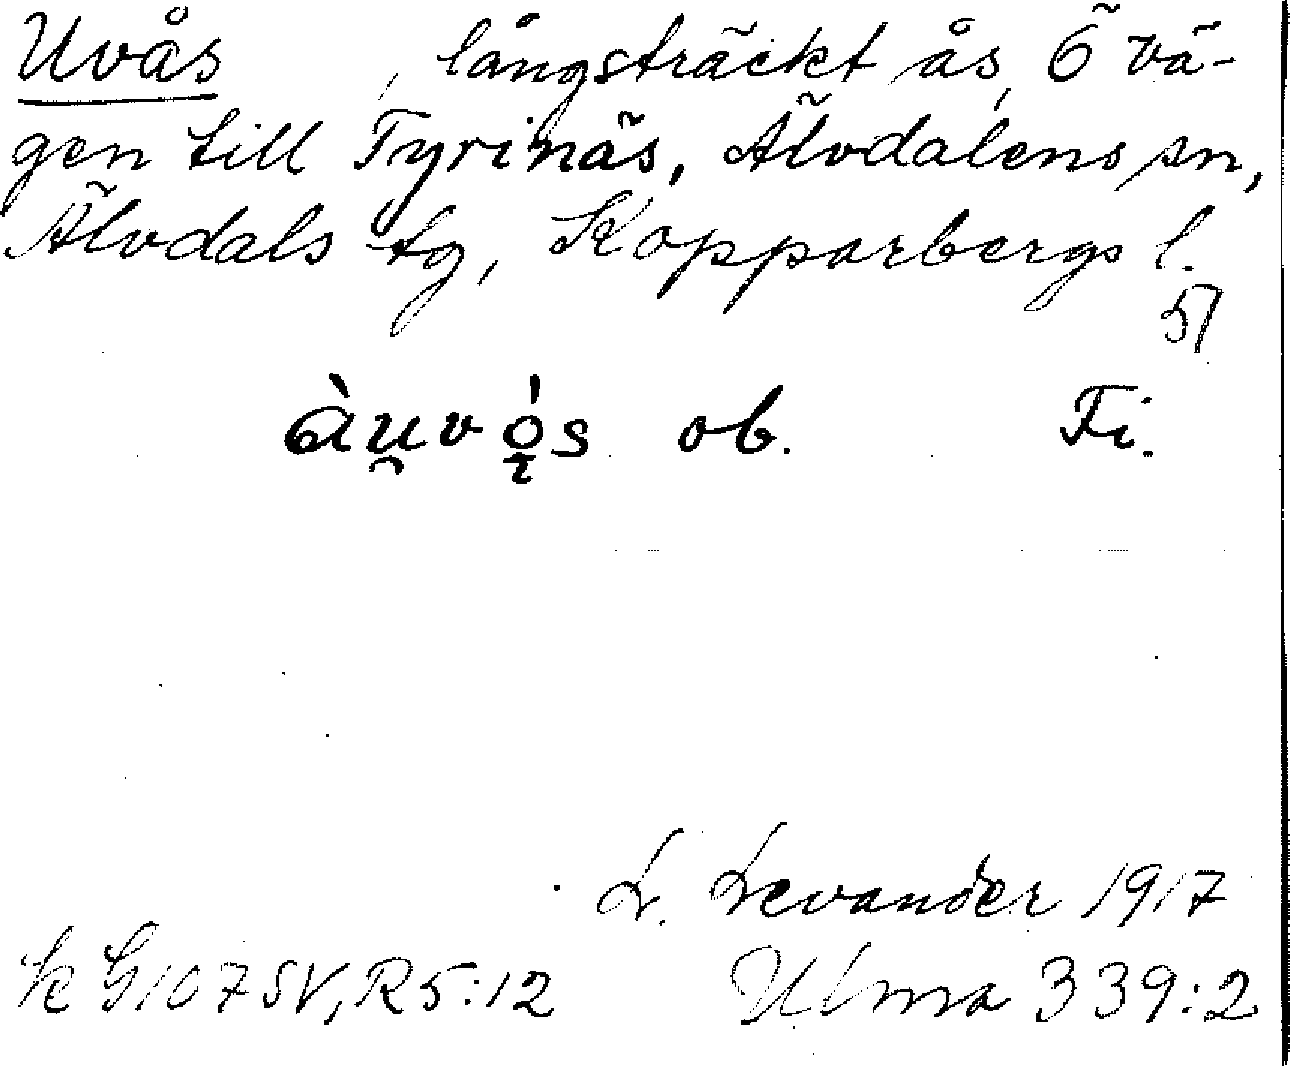 Uvås , långsträckt ås, Ö vä-
gen till Tyrinäs, Älvdalens sn,
Älvdals tg, Kopparbergs l.
51
àu̯vǫ́s ob. Fi.
L. Levander 1917
k G107SV, R5:12 Ulma 339:2